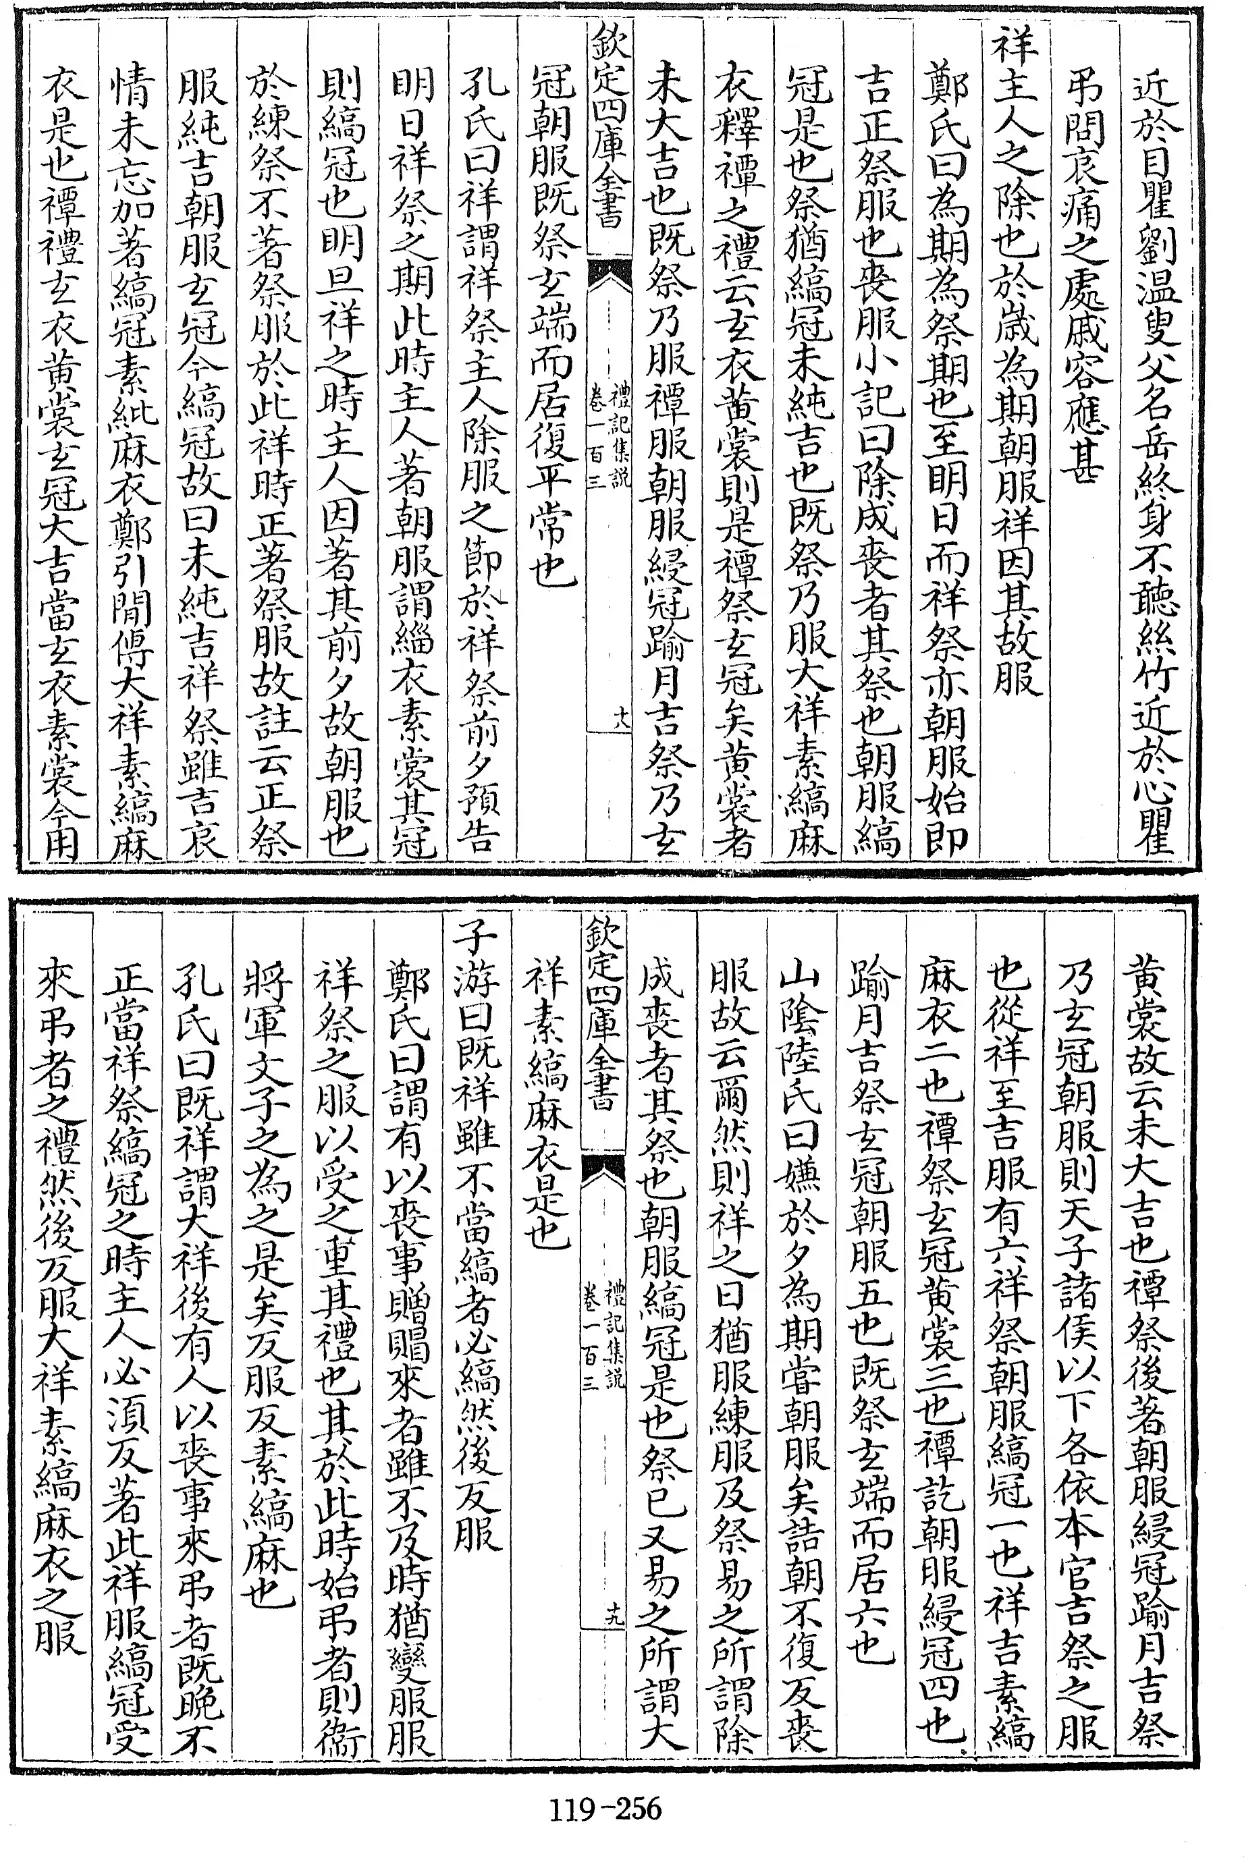 近於目瞿劉温叟父名岳終身不聽絲竹近於心瞿
弔問哀痛之處戚容應甚
祥主人之除也於歲為期朝服祥因其故服
鄭氏曰為期為祭期也至明日而祥祭亦朝服始即
吉正祭服也喪服小記曰除成喪者其祭也朝服縞
冠是也祭猶縞冠未純吉也既祭乃服大祥素縞麻
衣釋禫之禮云玄衣黄裳則是禫祭玄冠矣黄裳者
未大吉也既祭乃服禫服朝服綅冠踰月吉祭乃玄
欽定四庫全書
禮記集説
卷一百三
十八
冠朝服既祭玄端而居復平常也
孔氏曰祥謂祥祭主人除服之節於祥祭前夕預告
明日祥祭之期此時主人著朝服謂緇衣素裳其冠
則縞冠也明旦祥之時主人因著其前夕故朝服也
於練祭不著祭服於此祥時正著祭服故註云正祭
服純吉朝服玄冠今縞冠故曰未純吉祥祭雖吉哀
情未忘加著縞冠素紕麻衣鄭引閒傳大祥素縞麻
衣是也禫禮玄衣黄裳玄冠大吉當玄衣素裳今用
黄裳故云未大吉也禫祭後著朝服綅冠踰月吉祭
乃玄冠朝服則天子諸侯以下各依本官吉祭之服
也從祥至吉服有六祥祭朝服縞冠一也祥吉素縞
麻衣二也禫祭玄冠黄裳三也禫訖朝服綅冠四也
踰月吉祭玄冠朝服五也既祭玄端而居六也
山陰陸氏曰嫌於夕為期嘗朝服矣詰朝不復反喪
服故云爾然則祥之日猶服練服及祭易之所謂除
成喪者其祭也朝服縞冠是也祭已又易之所謂大
欽定四庫全書
禮記集説
卷一百三
十九
祥素縞麻衣是也
子游曰既祥雖不當縞者必縞然後反服
鄭氏曰謂有以喪事贈賵來者雖不及時猶變服服
祥祭之服以受之重其禮也其於此時始弔者則衛
將軍文子之為之是矣反服反素縞麻也
孔氏曰既祥謂大祥後有人以喪事來弔者既晚不
正當祥祭縞冠之時主人必須反著此祥服縞冠受
來弔者之禮然後反服大祥素縞麻衣之服
119-256